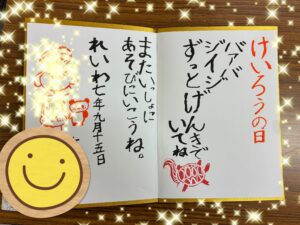 けいろうの日
バァバ
ジイジ
ずっとげんきで
いてね
またいっしょに
あそびにいこうね。
れいわ七年九月十五日